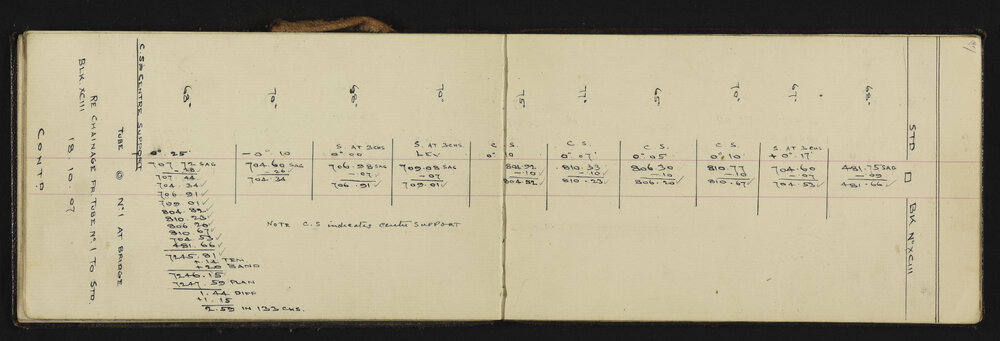 RE CHAINAGE FR TUBE No 1 TO STD.
BLK XCIII 18.10.07
CONTD.
TUBE ◎ No 1 AT BRIDGE
C.S = CENTRE SUPPORT
68° 70° 68° 70° 75° 77° 65° 70° 67° 68°
0° 25' -0° 10 S. AT 3CHS 0° 00 S. AT 3CHS. LEV C.S. 0° 10 C.S. 0° 07' C.S. 0° 05' C.S. 0° 10' S. AT 3CHS + 0° 17'
707.72 SAG 704.60 SAG 706.98 SAG 709.08 SAG 804.92 810.33 806.30 810.77 704.60 481.75 SAG
-.28 -.26 -.07 -.07 -.10 -.10 -.10 -.10 -.07 -.09
707.44 704.34 706.91 709.01 804.82 810.23 806.20 810.67 704.53 481.66
704.34
706.91
709.01
804.82
810.23
806.20
810.67
704.53
481.66
7245.81
+.14 TEM
+.20 BAND
7246.15
7247.59 PLAN
1.44 DIFF
+1.15
2.59 IN 133 CHS.
NOTE C.S indicates Centre SUPPORT
STD □ BK No XCIII